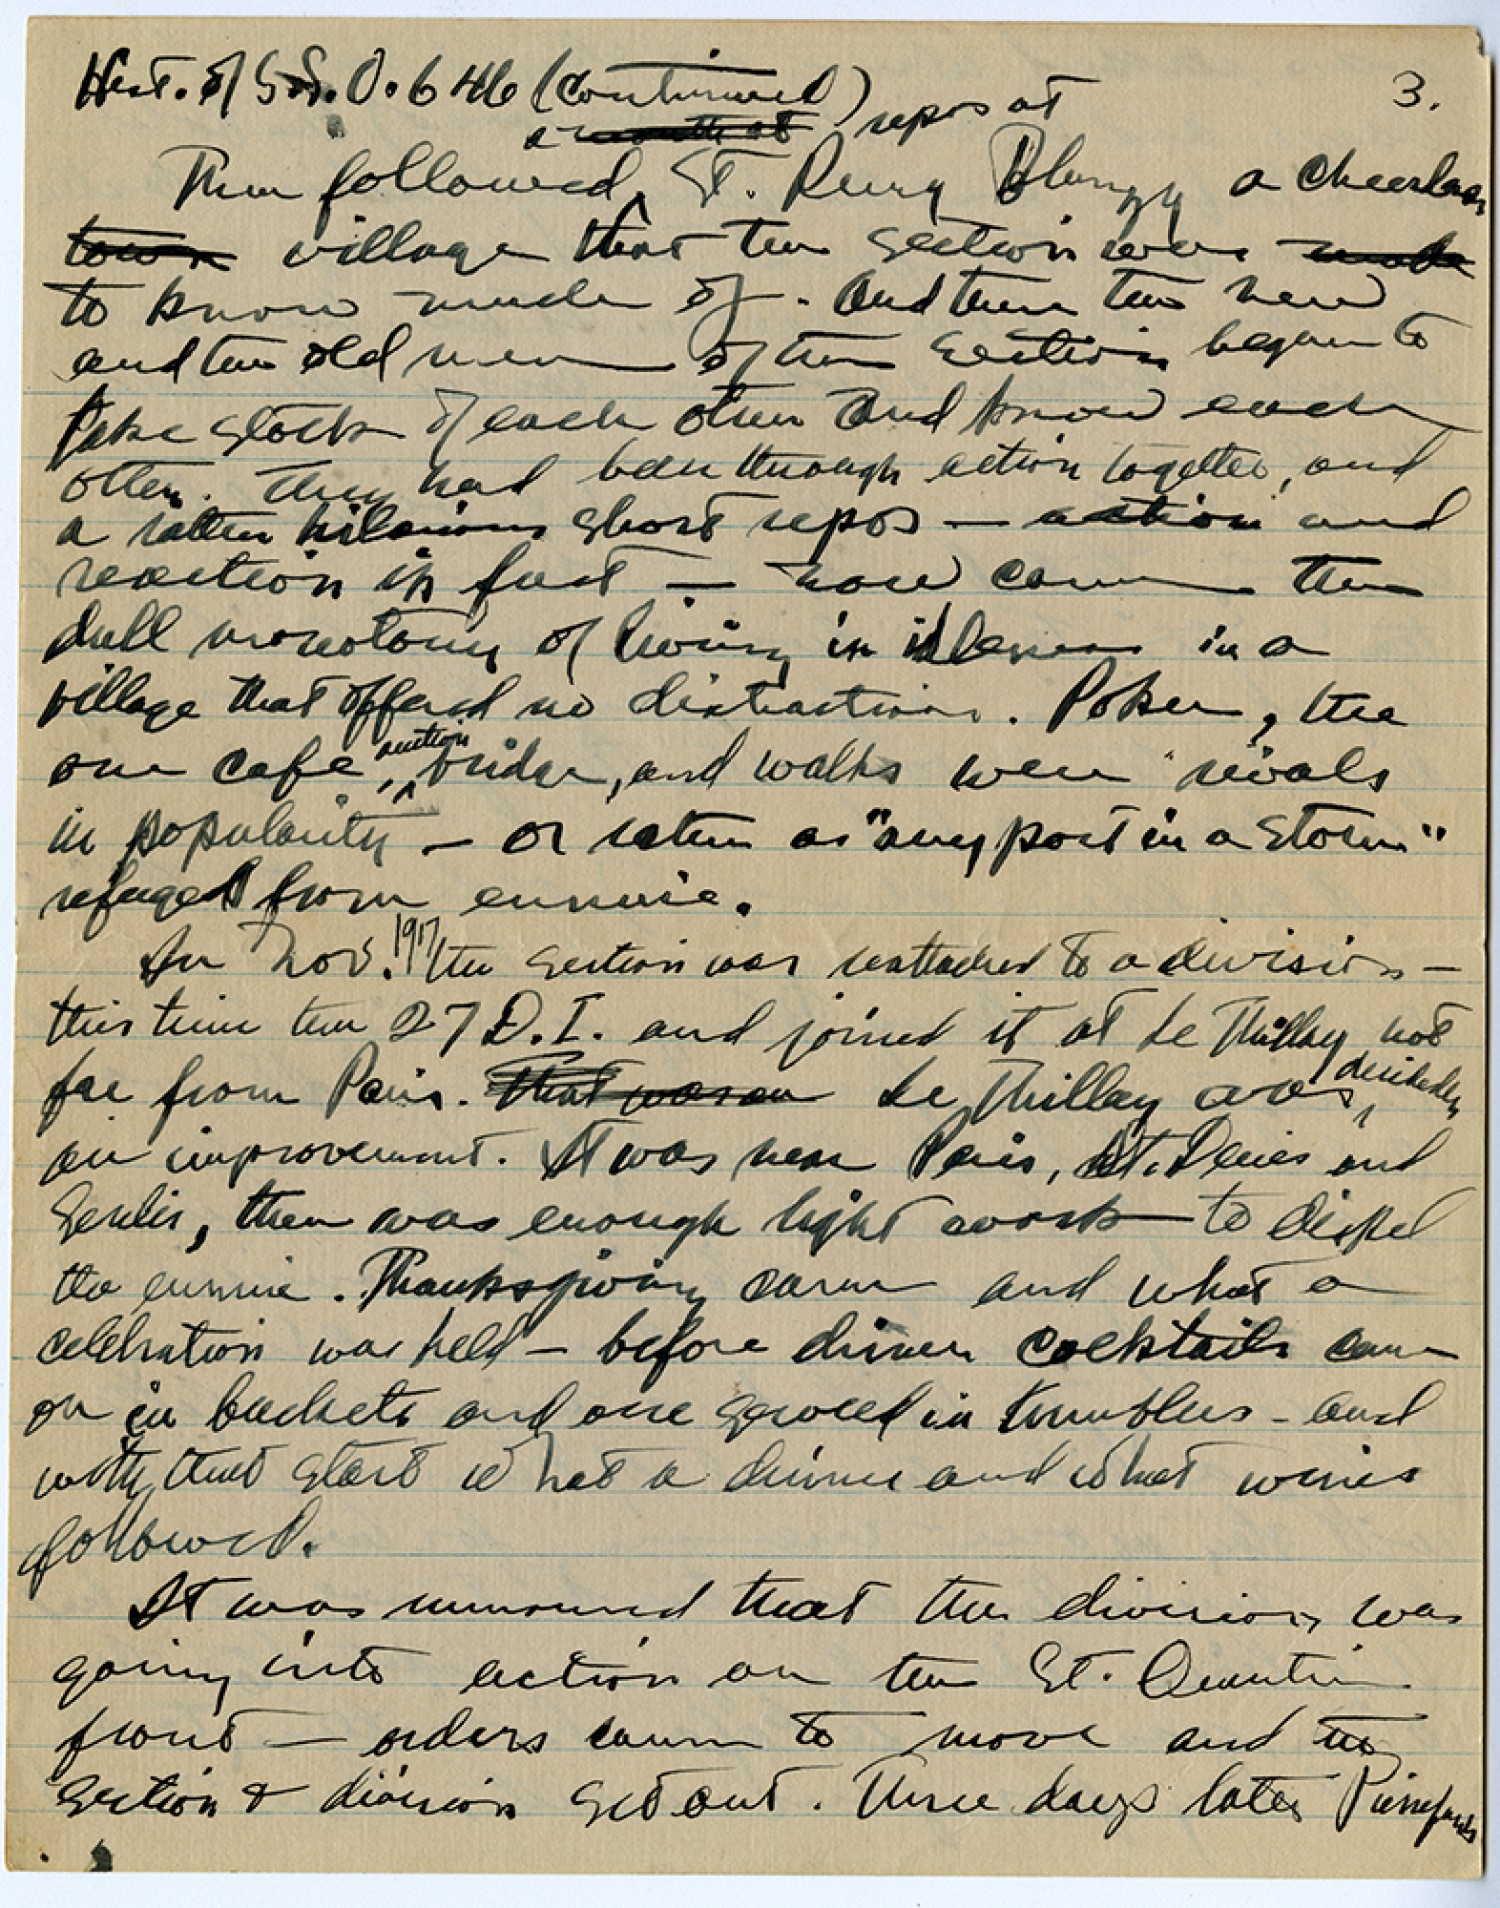 Hist. of S.S.U. 646 (Continued) 3.
a month at repos at
Then followed St. Remy Blangy a cheerless
town village that the section was made
to know much of. And then the new
and the old men of the Section began to
take stock of each other and know each
other. They had been through action together, and
a rather hilarious short repos — action and
reaction in fact — now came the
dull monotony of living in idleness in a
village that offered no distractions. Poker, the
one cafe, auction bridge, and walks were rivals
in popularity — or rather as "any port in a storm"
refuges from ennuie.
In Nov. 1917 the section was reattached to a division —
this time the 27 D.I. and joined it at Le Thillay not
far from Paris. That was an Le Thillay was decidedly
an improvement. It was near Paris, St. Denis and
Senlis, there was enough light work to dispel
the ennuie. Thanksgiving came and what a
celebration was held — before dinner cocktails came
on in buckets and were served in tumblers — and
with that start what a dinner and what wines
followed.
It was rumoured that the division was
going into action on the St. Quentin
front — orders came to move and the
section & division set out. Three days later Pierrefonds